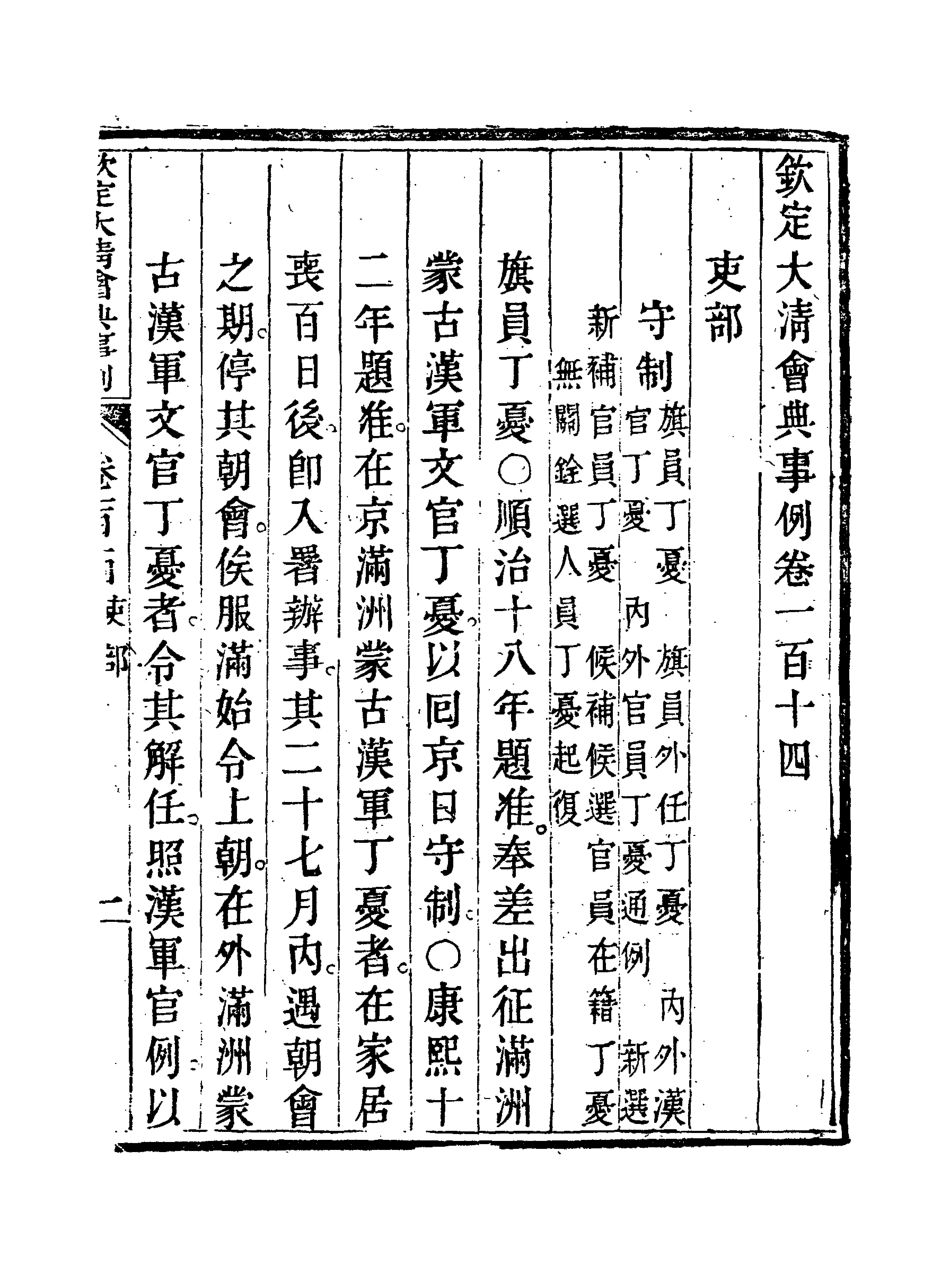 欽定大清會典事例卷一百十四
吏部
守制
旗員丁憂　旗員外任丁憂　內外漢
官丁憂　內外官員丁憂通例　新選
新補官員丁憂　候補候選官員在籍丁憂
無關銓選人員丁憂起復
旗員丁憂○順治十八年題准。奉差出征滿洲
蒙古漢軍文官丁憂。以囘京日守制。○康熙十
二年題准。在京滿洲蒙古漢軍丁憂者。在家居
喪百日後。卽入署辦事。其二十七月內。遇朝會
之期。停其朝會。俟服滿始令上朝。在外滿洲蒙
古漢軍文官丁憂者。令其解任。照漢軍官例。以
欽定大清會典事例　卷百　吏部　二